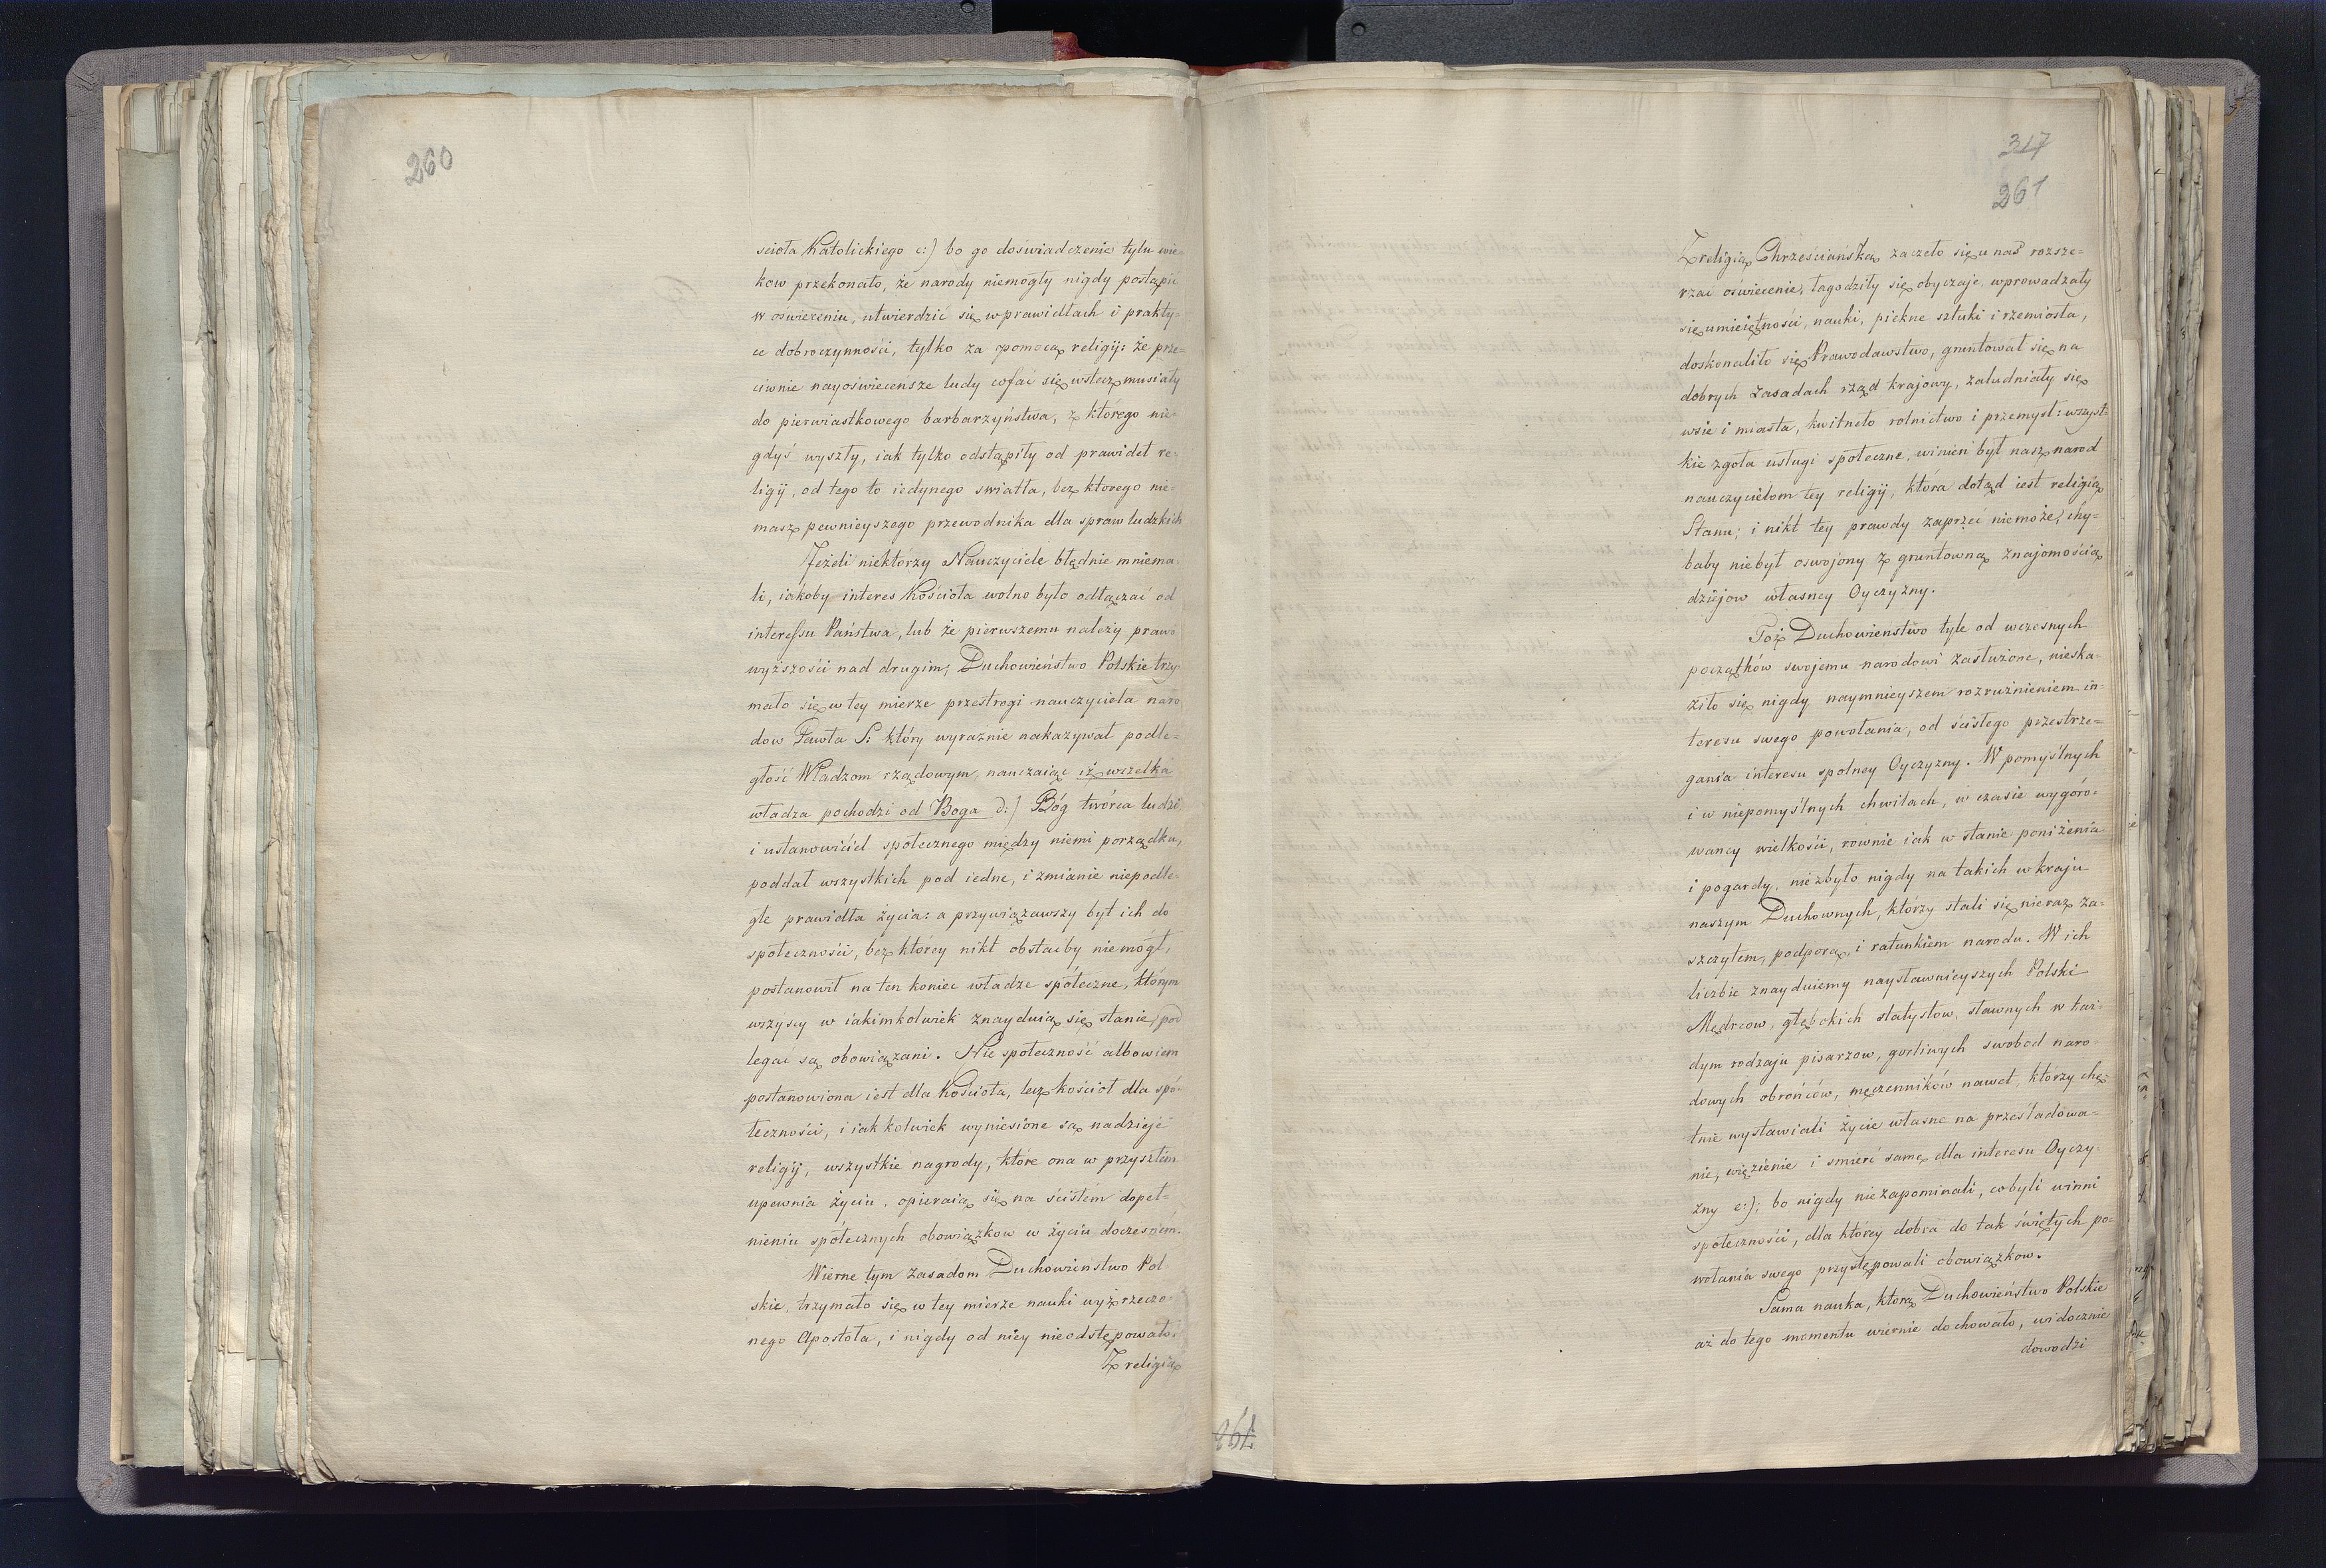 260
scioła Katolickiego c:) bo go doświadczenie tylu wie-
kow przekonało, że narody niemogły nigdy postąpić
w oświeceniu, utwierdzić się w prawidłach i prakty-
ce dobroczynności, tylko za pomocą religij: że prze-
ciwnie nayoświeceńsze ludy cofać się wstecz musiały
do pierwiastkowego barbarzyństwa, z którego nie-
gdyś wyszły, iak tylko odstąpiły od prawideł re-
ligij, od tego to iedynego swiatła, bez ktorego nie-
masz pewnieyszego przewodnika dla spraw ludzkich
Jeżeli niektorzy Nauczyciele błędnie mniema-
li, iakoby interes Kościoła wolno było odłączać od
interessu Państwa, lub że pierwszemu należy prawo
wyższości nad drugim; Duchowieństwo Polskie trzy-
mało się w tey mierze przestrogi nauczyciela naro
dow Pawła S: który wyraznie nakazywał podle-
głość Władzom rządowym, nauczaiąc iż wszelka
władza pochodzi od Boga d:) Bóg twórca ludzi
i ustanowiciel społecznego między niemi porządku,
poddał wszystkich pod iedne, i zmianie niepodle-
głe prawidła życia: a przywiązawszy byt ich do
społeczności, bez którey nikt obstaćby niemógł,
postanowił na ten koniec władze społeczne, którym
wszyscy w iakimkolwiek znayduią się stanie, pod
legać są obowiązani. Nie społeczność albowiem
postanowiona iest dla Kościoła, lecz kościoł dla spó-
łeczności, i iakkolwiek wyniesione są nadzieje
religij, wszystkie nagrody, które ona w przyszłem
upewnia życiu, opieraią się na ścisłem dopeł-
nieniu społecznych obowiązkow w życiu doczesnem.
Wierne tym zasadom Duchowieństwo Pol
skie, trzymało się w tey mierze nauki wyż rzeczo-
nego Apostoła, i nigdy od niey nieodstępowało.
Z religią
317
261
Z religią Chrześciańską zaczeło się u nas rozsze-
rzać oświecenie, łagodziły się obyczaje, wprowadzały
się umieiętności, nauki, piekne sztuki i rzemiosła,
doskonaliło się Prawodawstwo, gruntował się na
dobrych zasadach rząd krajowy, zaludniały się
wsie i miasta, kwitneło rolnictwo i przemysł: wszyst-
kie zgoła usługi społeczne, winien był nasz narod
nauczycielom tey religij, która dotąd iest religią
Stanu; i nikt tey prawdy zaprzeć niemoże, chy-
baby niebył oswojony z gruntowną znajomością
dziejow własney Oyczyzny.
Toż Duchowieństwo tyle od wczesnych
początków swojemu narodowi zasłużone, nieska-
ziło się nigdy naymnieyszem rozrużnieniem in-
teresu swego powołania, od scisłego przestrze-
gania interesu spolney Oyczyzny. W pomyślnych
i w niepomyślnych chwilach, w czasie wygóro-
waney wielkości, rownie iak w stanie poniżenia
i pogardy, niezbyło nigdy na takich w kraju
naszym Duchownych, którzy stali się nieraz za-
szczytem, podporą, i ratunkiem narodu. W ich
liczbie znayduiemy naysławnieyszych Polski
Mędrcow, głębokich statystow, sławnych w każ-
dym rodzaju pisarzow, gorliwych swobod naro-
dowych obrońców, męczenników nawet, którzy chę-
tnie wystawiali życie własne na prześladowa-
nie, więzienie i smierć samę dla interesu Oyczy-
zny e:); bo nigdy niezapominali, co byli winni
społeczności, dla którey dobra do tak świętych po-
wołania swego przystępowali obowiązkow.
Sama nauka, którą Duchowieństwo Polskie
aż do tego momentu wiernie dochowało, widocznie
dowodzi
261